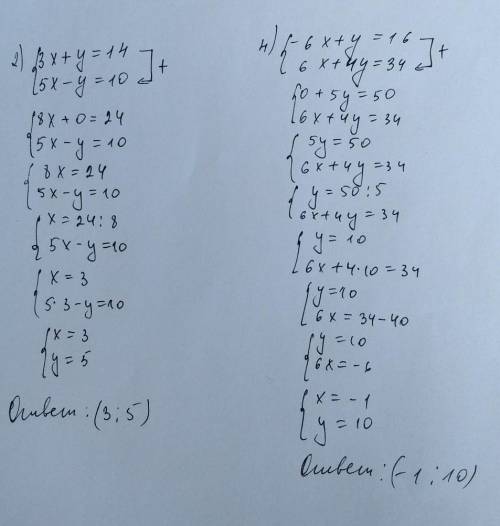 2) {3x+y=14
{5x-y=10 ] +
{8x+0=24
{5x-y=10
{8x=24
{5x-y=10
{x=24:8
{5x-y=10
{x=3
{5·3-y=10
{x=3
{y=5
Ответ: (3;5)
4) {-6x+y=16
{6x+4y=34 ] +
{0+5y=50
{6x+4y=34
{5y=50
{6x+4y=34
{y=50:5
{6x+4y=34
{y=10
{6x+4·10=34
{y=10
{6x=34-40
{y=10
{6x=-6
{x=-1
{y=10
Ответ: (-1;10)